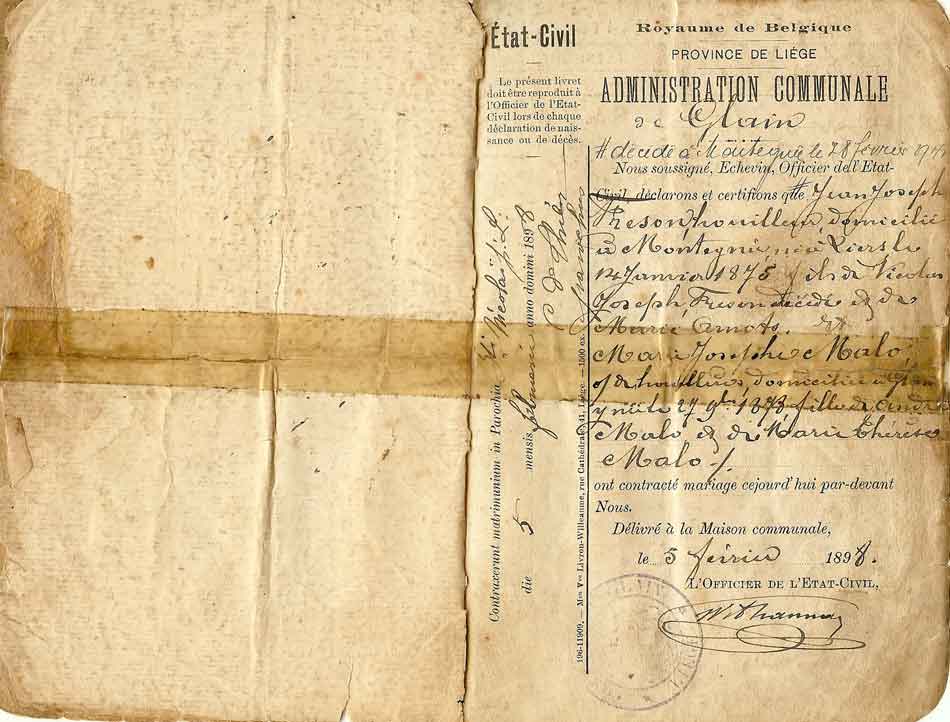 État-Civil
Le présent livret
doit être reproduit à
l'Officier de l'Etat-
Civil lors de chaque
déclaration de nais-
sance ou de décès.
Contraxerunt matrimunium in Parochia Sti Nicolaï
die 5 mensis februarii anno domini 1898
196-11909. — Mon Vve Livron-Willeaume, rue Cathédrale, 41, Liège. — 1500 ex.
Royaume de Belgique
PROVINCE DE LIÉGE
ADMINISTRATION COMMUNALE
de Glain
# décédé à Montegnée le 28 février
Nous soussigné, Echevin, Officier de l'Etat-
Civil déclarons et certifions que Jean Joseph
Freson, houilleur, domicilié
à Montegnée, né à Liers le
14 Janvier 1875 fils de Nicolas
Joseph Freson décédé et de
Marie Arnots. et
Marie Josephe Malo,
domiciliée à Glain
y née le 27 9bre 1878 fille de André
Malo et de Marie Thérèse
Malo
ont contracté mariage cejourd'hui par-devant
Nous.
Délivré à la Maison communale,
le 5 février 1898.
L'OFFICIER DE L'ETAT-CIVIL,